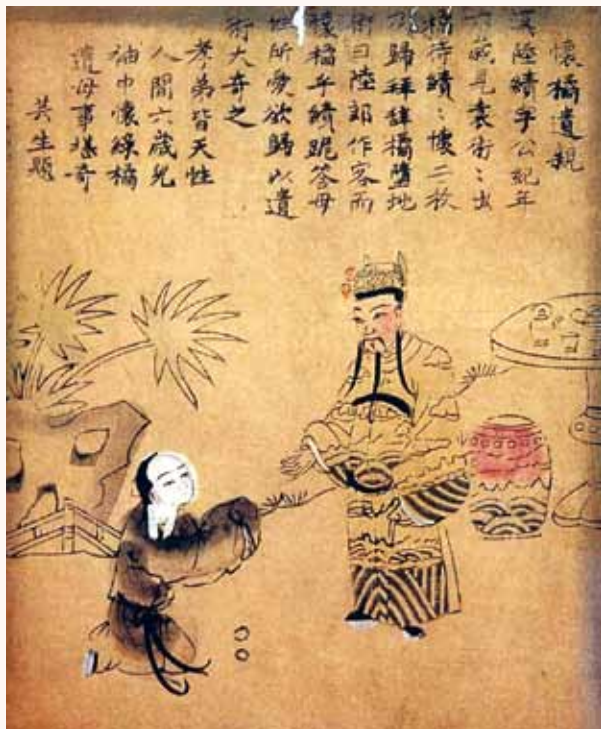 懷橘遺親
漢陸績字公紀年
六歲見袁術〻出
橘待績〻懷二枚
及歸拜辞橘墮地
術曰陸郎作客而
懷橘乎績跪答母
性所愛欲歸以遺
術大奇之
孝弟皆天性
人間六歲兒
袖中懷綠橘
遺母事堪奇
生題